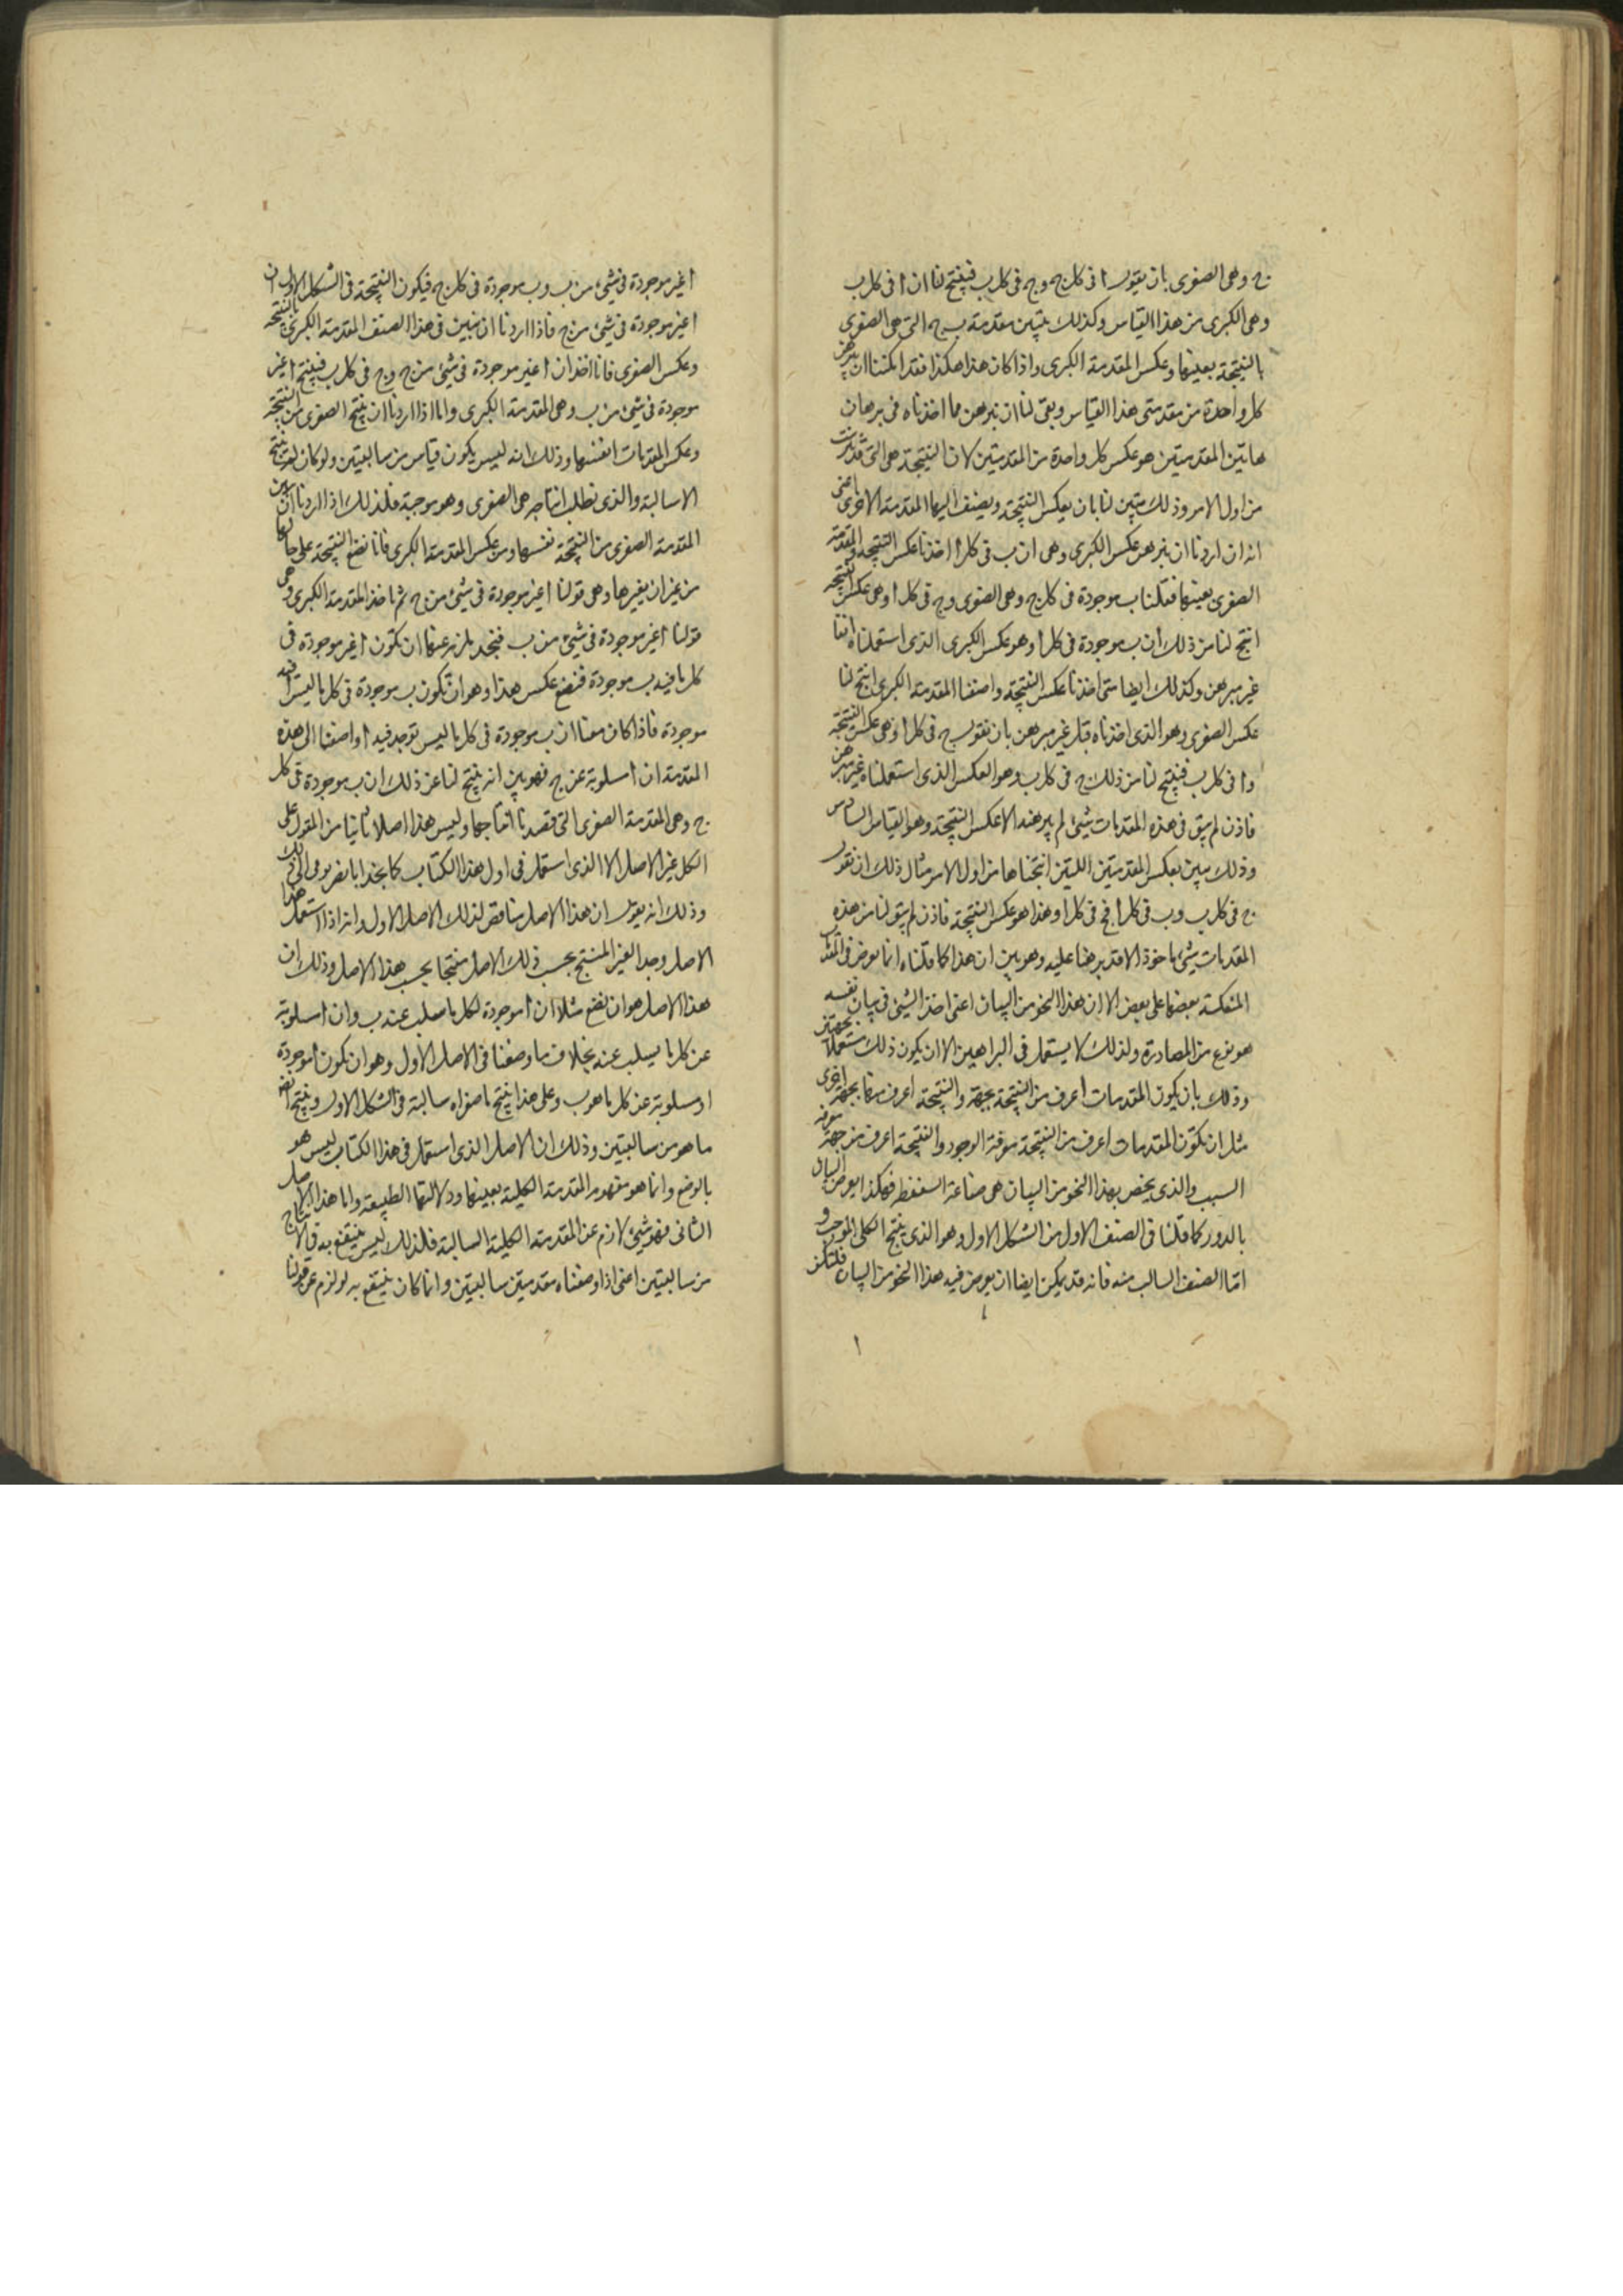 ج وهى الصغرى بان يقول ا فى كل ج وج فى كل ب فينتج لنا ان ا فى كل ب
وهى الكبرى من هذا القياس وكذلك يتبين مقدمة ب ج التى هى الصغرى
بالنتيجة بعينها وعكس المقدمة الكبرى واذا كان هذا هكذا فقد امكننا ان نبرهن
كل واحدة من مقدمتى هذا القياس وبقى لنا ان نبرهن مما اخذناه فى برهان
هاتين المقدمتين هو عكس كل واحدة من المقدمتين لان النتيجة هى التى قد تبرهنت
من اول الامر وذلك يتبين لنا بان يعكس النتيجة ويضيف اليها المقدمة الاخرى اعنى
انه ان اردنا ان نبرهن عكس الكبرى وهى ان ب فى كل ا اخذنا عكس النتيجة والمقدمة
الصغرى بعينها فقلنا ب موجودة فى كل ج وهى الصغرى وج فى كل ا وهى عكس النتيجة
انتج لنا من ذلك ان ب موجودة فى كل ا وهو عكس الكبرى الذى استعملناه انفا
غير مبرهن وكذلك ايضا متى اخذنا عكس النتيجة واضفنا المقدمة الكبرى انتج لنا
عكس الصغرى وهو الذى اخذناه قبل غير مبرهن بان نقول ج فى كل ا وهى عكس النتيجة
وا فى كل ب فينتج لنا من ذلك ج فى كل ب وهو العكس الذى استعملناه غير مبرهن
فاذن لم يبق فى هذه المقدمات شئ لم يبرهن الا عكس النتيجة وهو القياس السادس
وذلك يبين بعكس المقدمتين اللتين انتجناها من اول الامر مثال ذلك ان نقول
ج فى كل ب وب فى كل ا فج فى كل ا وهذا هو عكس النتيجة فاذن لم يبق لنا من هذه
المقدمات شئ ماخوذ الا قد برهنا عليه وهو بين ان هذا كما قلناه انما يعرض فى المقدمات
المنعكسة بعضها على بعض الا ان هذا النحو من البيان اعنى اخذ الشئ فى بيان نفسه
هو نوع من المصادرة ولذلك لا يستعمل فى البراهين الا ان يكون ذلك مستعملا بجهتين
وذلك بان يكون المقدمات اعرف من النتيجة بجهة والنتيجة اعرف منها بجهة اخرى
مثل ان تكون المقدمات اعرف من النتيجة معرفة الوجود والنتيجة اعرف من جهة معرفة
السبب والذى يخص بهذا النحو من البيان هى صناعة السفسطة فهكذا يعرض البيان
بالدور كما قلنا فى الصنف الاول من الشكل الاول وهو الذى ينتج الكلى الموجب و
اما الصنف السالب منه فانه قد يمكن ايضا ان يعرض فيه هذا النحو من البيان فلتكن
ا
ا غير موجودة فى شئ من ب وب موجودة فى كل ج فيكون النتيجة فى الشكل الاول ان
ا غير موجودة فى شئ من ج فاذا اردنا ان نبين فى هذا الصنف المقدمة الكبرى بالنتيجة
وعكس الصغرى فانا ناخذ ان ا غير موجودة فى شئ من ج وج فى كل ب فينتج ا غير
موجودة فى شئ من ب وهى المقدمة الكبرى واما اذا اردنا ان ينتج الصغرى من النتيجة
وعكس المقدمات انفسها وذلك انه ليس يكون قياس من سالبتين ولو كان لم ينتج
الا سالبة والذى نطلب انتاجه هى الصغرى وهو موجبة فلذلك اذا اردنا ان نبين
المقدمة الصغرى من النتيجة نفسها ومن عكس المقدمة الكبرى فانا نضع النتيجة على حالها
من غير ان يغيرها وهى قولنا ا غير موجودة فى شئ من ج ثم ناخذ المقدمة الكبرى وهى
قولنا ا غير موجودة فى شئ من ب فنجد يلزم عنها ان تكون ا غير موجودة فى
كل ما فيه ب موجودة فنضع عكس هذا وهو ان تكون ب موجودة فى كل ما ليس ا فيه
موجودة فاذا كان معنا ان ب موجودة فى كل ما ليس توجد فيه ا واضفنا الى هذه
المقدمة ان ا مسلوبة عن ج فهو بين انه ينتج لنا عن ذلك ان ب موجودة فى كل
ج وهى المقدمة الصغرى التى قصدنا انتاجها وليس هذا اصلا ثانيا من المقول على
الكل غير الاصل الا الذى استعمل فى اول هذا الكتاب كما نجد ابا نصر يومى الى ذلك
وذلك انه يقول ان هذا الاصل مناقض لذلك الاصل الاول وانه اذا استعمل هذا
الاصل وجد الغير المنتج بحسب ذلك الاصل منتجا بحسب هذا الاصل وذلك ان
هذا الاصل هو ان نضع مثلا ان ا موجودة لكل ما سلب عنه ب وان ا مسلوبة
عن كل ما يسلب عنه بخلاف ما وضعنا فى الاصل الاول وهو ان تكون ا موجودة
او مسلوبة عن كل ما هو ب وعلى هذا ينتج ما صغراه سالبة فى الشكل الاول وينتج ايضا
ما هو من سالبتين وذلك ان الاصل الذى استعمل فى هذا الكتاب ليس هو
بالوضع وانما هو مفهوم المقدمة الكلية بعينها ودلالتها الطبيعة واما هذا الاصل
الثانى فهو شئ لازم عن المقدمة الكلية السالبة فلذلك ليس ينتفع به فى الانتاج
من سالبتين اعنى اذا وضعناه مقدمتين سالبتين وانما كان ينتفع به لو لزم عن قولنا